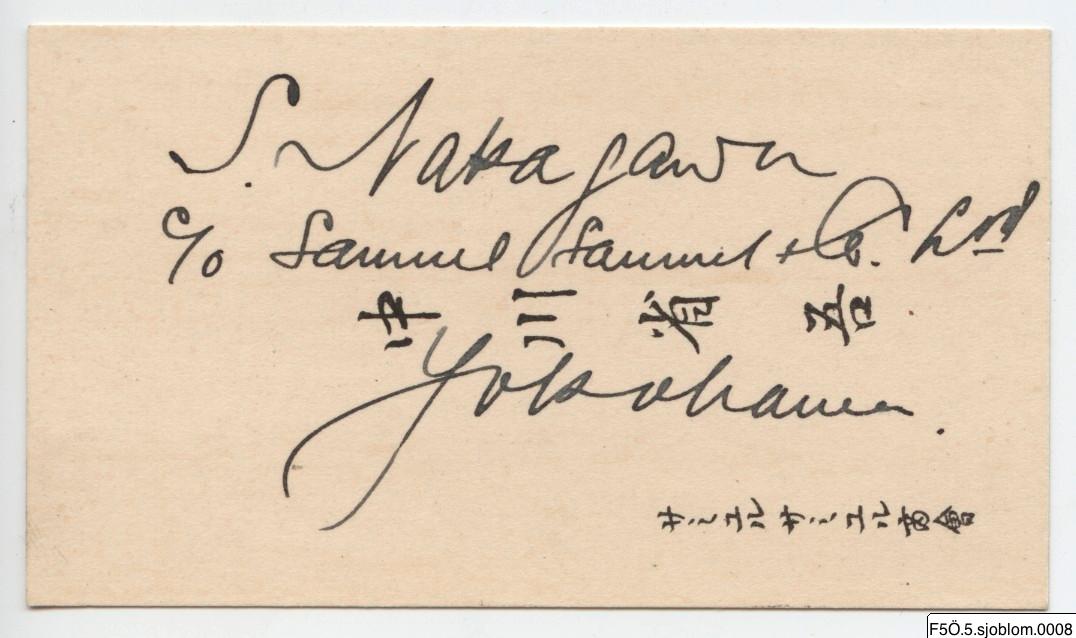 S. Nakagawa
c/o Samuel Samuel & Co. Ltd
中川省吾
Yokohama.
サミユエルサミユエル商會
F5Ö.5.sjoblom.0008